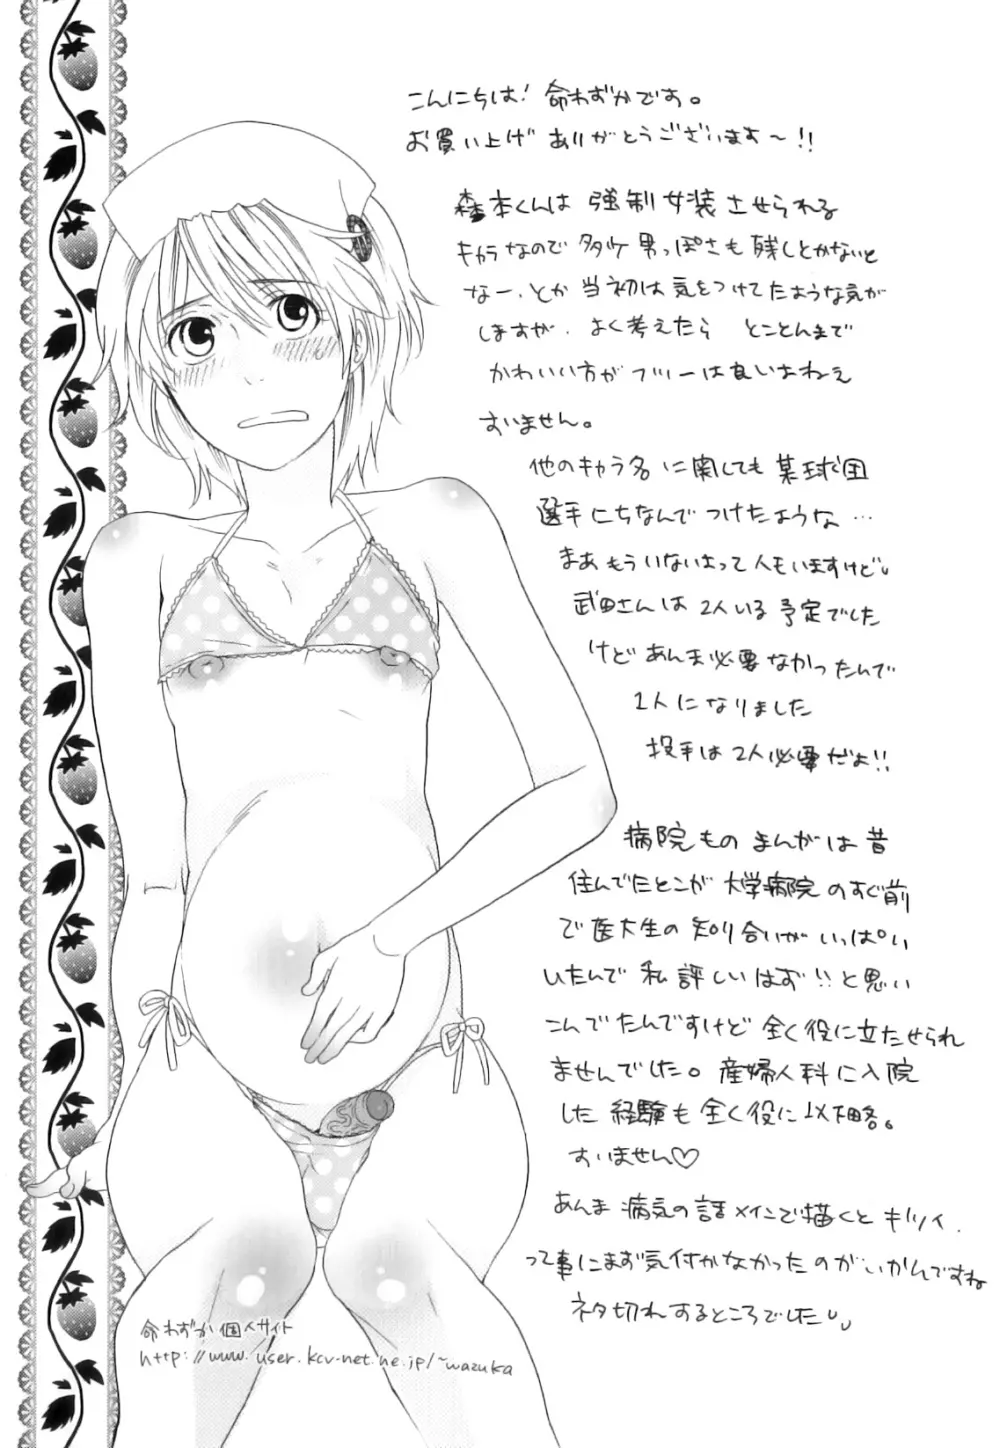 こんにちは! 命わずかです。
お買い上げ ありがとうございます〜!!
森本くんは 強制女装させられる
キャラなので 多少男っぽさも残しとかないと
なー、とか 当初は気をつけてたような気が
しますが、よく考えたら とことんまで
かわいい方が フツーは良いよねえ
すいません。
他のキャラ名に関しても 某球団
選手にちなんで つけたような…
まあ もういないよって人もいますけど
武田さんは 2人いる予定でした
けど あんま必要なかったんで
1人になりました
投手は 2人必要だよ!!
病院ものまんがは 昔
住んでたとこが 大学病院のすぐ前
で医大生の知り合いが いっぱい
いたんで 私 詳しいはず!! と思い
こんでたんですけど 全く役に立たせられ
ませんでした。産婦人科に入院
した経験も 全く役に 以下略。
すいません♡
あんま 病気の話メインで描くと キツイ、
って事にまず気付かなかったのが いかんですね
ネタ切れするところでした
命わずか個人サイト
http://www.user.kcv-net.ne.jp/~wazuka